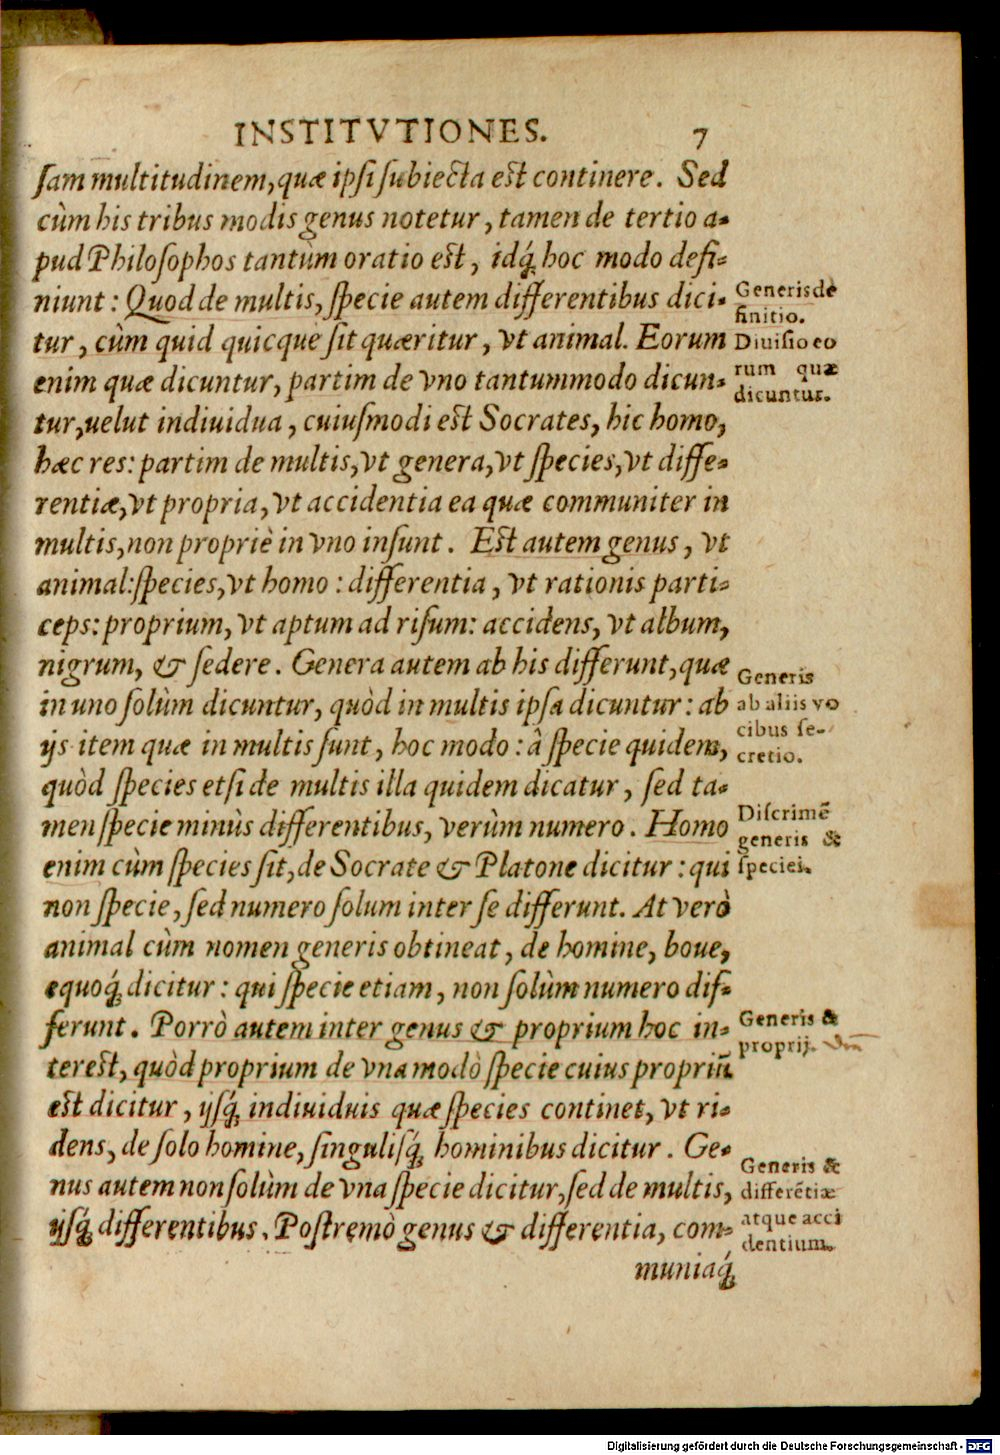 INSTITVTIONES. 7
ſam multitudinem, quæ ipſi ſubiecta est continere. Sed
cùm his tribus modis genus notetur, tamen de tertio a-
pud Philoſophos tantùm oratio est, idq́; hoc modo defi-
niunt: Quod de multis, ſpecie autem differentibus dici-
tur, cùm quid quicque ſit quæritur, vt animal. Eorum
enim quæ dicuntur, partim de vno tantummodo dicun-
tur, uelut indiuidua, cuiuſmodi est Socrates, hic homo,
hæc res: partim de multis, vt genera, vt ſpecies, vt diffe-
rentiæ, vt propria, vt accidentia ea quæ communiter in
multis, non propriè in vno inſunt. Est autem genus, vt
animal: ſpecies, vt homo: differentia, vt rationis parti-
ceps: proprium, vt aptum ad riſum: accidens, vt album,
nigrum, & ſedere. Genera autem ab his differunt, quæ
in uno ſolùm dicuntur, quòd in multis ipſa dicuntur: ab
ijs item quæ in multis ſunt, hoc modo: à ſpecie quidem,
quòd ſpecies etſi de multis illa quidem dicatur, ſed ta-
men ſpecie minùs differentibus, verùm numero. Homo
enim cùm ſpecies ſit, de Socrate & Platone dicitur: qui
non ſpecie, ſed numero ſolum inter ſe differunt. At verò
animal cùm nomen generis obtineat, de homine, boue,
equoq́; dicitur: qui ſpecie etiam, non ſolùm numero dif-
ferunt. Porrò autem inter genus & proprium hoc in-
terest, quòd proprium de vna modò ſpecie cuius propriũ
est dicitur, ijsq́; indiuiduis quæ ſpecies continet, vt ri-
dens, de ſolo homine, ſinguliſq́; hominibus dicitur. Ge-
nus autem non ſolùm de vna ſpecie dicitur, ſed de multis,
ijſq́; differentibus. Poſtremò genus & differentia, com-
muniaq́;
Generis dè
finitio.
Diuiſio eo
rum quæ
dicuntur.
Generis
ab aliis vo
cibus ſe-
cretio.
Diſcrimẽ
generis &
ſpeciei.
Generis &
proprij.
Generis &
differẽtiæ
atque acci
dentium.
Digitalisierung gefördert durch die Deutsche Forschungsgemeinschaft - DFG